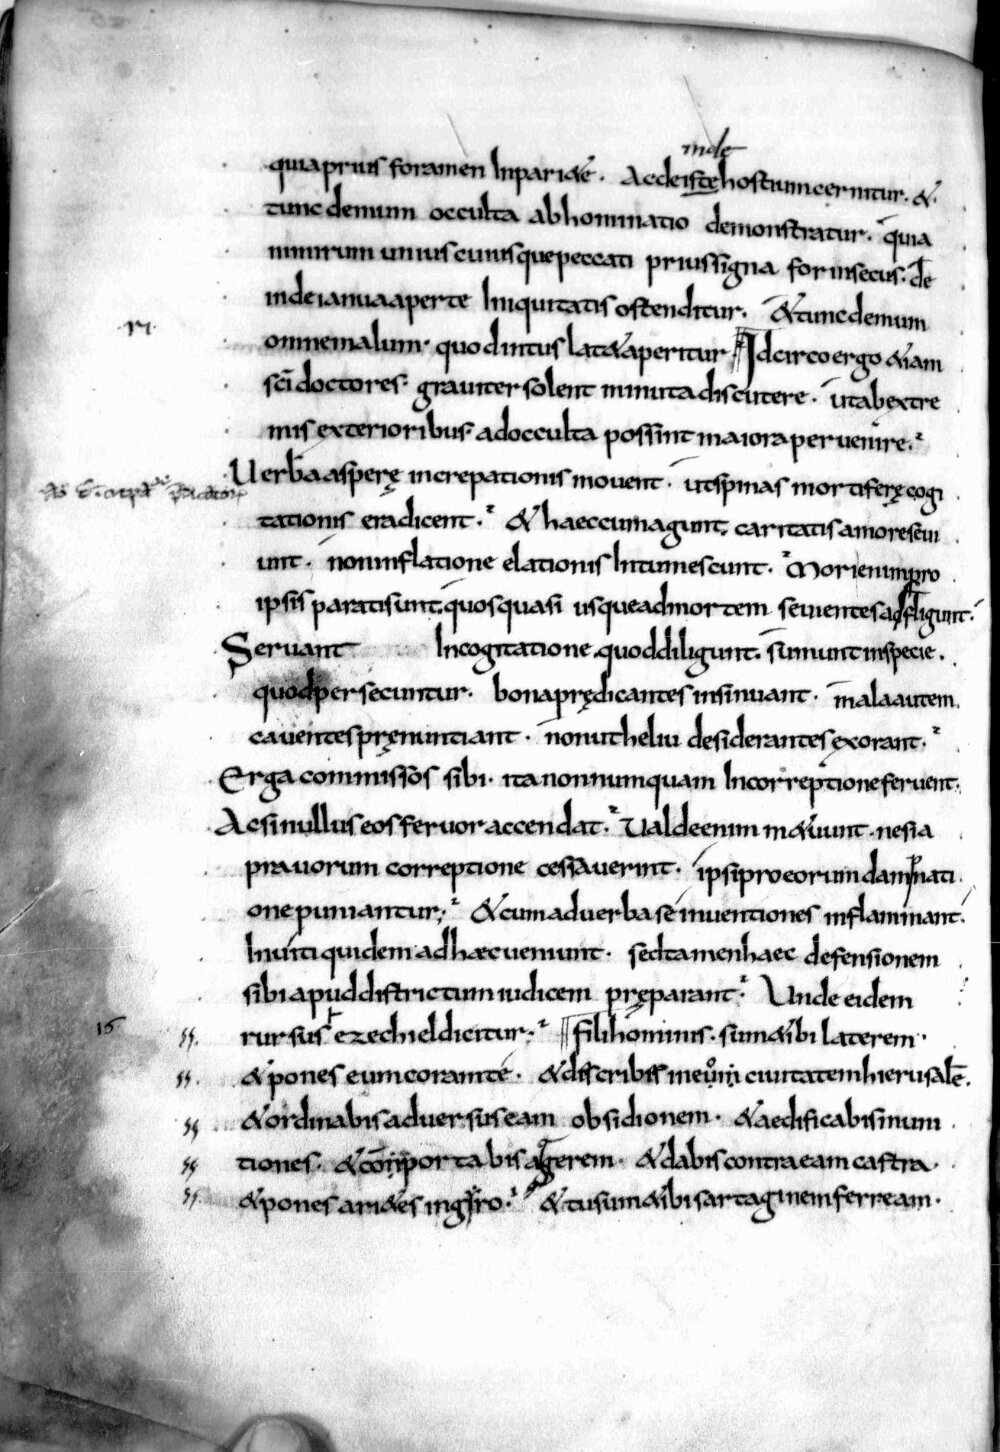 inde
quia prius foramen Inpari&e͂. Ac deiste hostium cernitur. &
tunc demum occulta abhominatio demonstratur. quia
nimirum unius cuiusque peccati prius signa forinsecus. de
inde ianua aperte Iniquitatis ostenditur. & tunc demum
omne malum. quod intus lat& aperitur. Idcirco ergo &iam
sc̄i doctores. graviter solent minuta discutere. ut ab extre
mis exterioribus. ad occulta possint maiora pervenire.
Uerba asperę increpationis movent. ut spinas mortiferę cogi
tationis eradicent. & haec cum agunt. caritatis amore sevi
unt. non inflatione elationis Intumescunt. Mori enim pro
ipsis parati sunt. quos quasi usque ad mortem sevientes adfligunt.
Servant In cogitatione quod diligunt. sumunt in specie.
quod persecuntur. bona prędicantes insinuant. mala autem
caventes pręnuntiant. non ut heliu desiderantes exorant.
Erga commissos sibi. ita non numquam Incorreptione fervent.
Ac si nullus eos fervor accendat. Valde enim m&uunt. ne si a
pravorum correptione cessaverint. ipsi pro eorum damnati
one puniantur. & cum ad verba se inventiones inflammant.
Inviti quidem ad hæc veniunt. sed tamen haec defensionem
sibi apud districtum iudicem pręparant. Unde eidem
15
rursus ezechiel dicitur. Fili hominis. sum& tibi laterem.
& pones eum coram te. & discribis in eum civitatem hierusalē.
& ordinabis adversus eam obsidionem. & aedificabis inum
tiones. & conportabis aggerem. & dabis contra eam castra.
& pones ari&es in gyro. & tu sum& tibi sartaginem ferream.